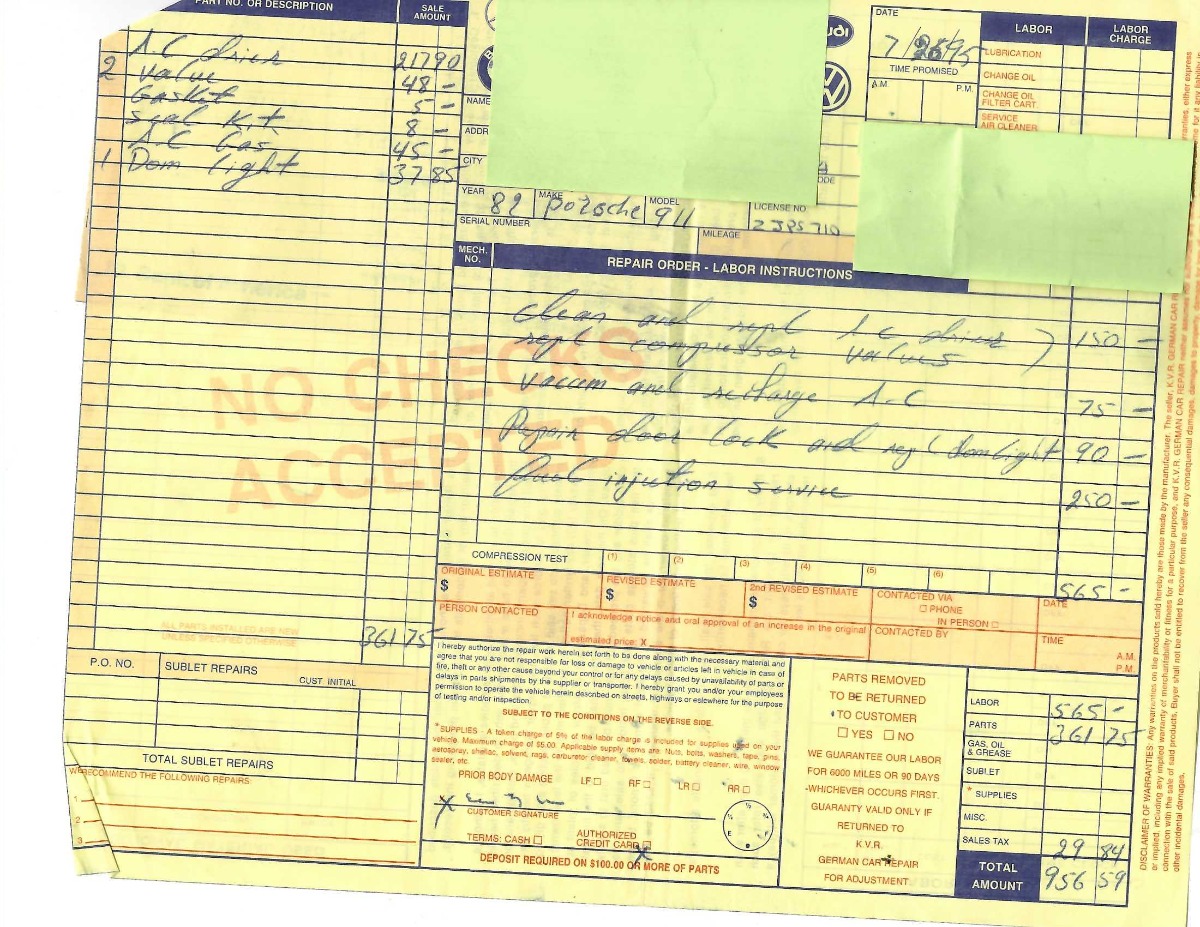 PART NO. OR DESCRIPTION SALE AMOUNT
A.C drier 217 90
2 Value 48 -
Gasket 5 -
Seal Kit 8 -
A.C Gas 45 -
1 Dom light 37 85
NO CHECKS
ACCEPTED
ALL PARTS INSTALLED ARE NEW
UNLESS SPECIFIED OTHERWISE
361 75
P.O. NO. SUBLET REPAIRS
CUST. INITIAL
TOTAL SUBLET REPAIRS
WE RECOMMEND THE FOLLOWING REPAIRS
1
2
3
UDI
DATE
7/25/95
TIME PROMISED
A.M. P.M.
LABOR LABOR CHARGE
LUBRICATION
CHANGE OIL
CHANGE OIL
FILTER CART.
SERVICE
AIR CLEANER
NAME
ADDR
CITY
A
ODE
YEAR 82 MAKE Porsche MODEL 911
LICENSE NO.
2JPS710
SERIAL NUMBER
MILEAGE
MECH. NO. REPAIR ORDER - LABOR INSTRUCTIONS
Clean and repl A.C drier ) 150 -
repl compressor values
vaccum and recharge A-C 75 -
Repair door lock and repl domlight 90 -
fuel injection service 250 -
COMPRESSION TEST (1) (2) (3) (4) (5) (6)
565 -
ORIGINAL ESTIMATE
$
REVISED ESTIMATE
$
2nd REVISED ESTIMATE
$
CONTACTED VIA
☐ PHONE
IN PERSON ☐
DATE
PERSON CONTACTED
I acknowledge notice and oral approval of an increase in the original
estimated price. X
CONTACTED BY
TIME
A.M.
P.M.
I hereby authorize the repair work herein set forth to be done along with the necessary material and
agree that you are not responsible for loss or damage to vehicle or articles left in vehicle in case of
fire, theft or any other cause beyond your control or for any delays caused by unavailability of parts or
delays in parts shipments by the supplier or transporter. I hereby grant you and/or your employees
permission to operate the vehicle herein described on streets, highways or elsewhere for the purpose
of testing and/or inspection.
SUBJECT TO THE CONDITIONS ON THE REVERSE SIDE.
*SUPPLIES - A token charge of 5% of the labor charge is included for supplies used on your
vehicle. Maximum charge of $5.00. Applicable supply items are: Nuts, bolts, washers, tape, pins,
aerospray, shellac, solvent, rags, carburetor cleaner, towels, solder, battery cleaner, wire, window
sealer, etc.
PRIOR BODY DAMAGE LF ☐ RF ☐ LR ☐ RR ☐
X
CUSTOMER SIGNATURE
TERMS: CASH ☐ AUTHORIZED
CREDIT CARD ☐ X
E F
DEPOSIT REQUIRED ON $100.00 OR MORE OF PARTS
PARTS REMOVED
TO BE RETURNED
TO CUSTOMER
☐ YES ☐ NO
WE GUARANTEE OUR LABORS
FOR 6000 MILES OR 90 DAYS
-WHICHEVER OCCURS FIRST.
GUARANTY VALID ONLY IF
RETURNED TO
K.V.R.
GERMAN CAR REPAIR
FOR ADJUSTMENT.
LABOR 565 -
PARTS 361 75
GAS, OIL
& GREASE
SUBLET
* SUPPLIES
MISC.
SALES TAX 29 84
TOTAL AMOUNT 956 59
DISCLAIMER OF WARRANTIES- Any warranties on the products sold hereby are those made by the manufacturer. The seller, K.V.R. GERMAN CAR